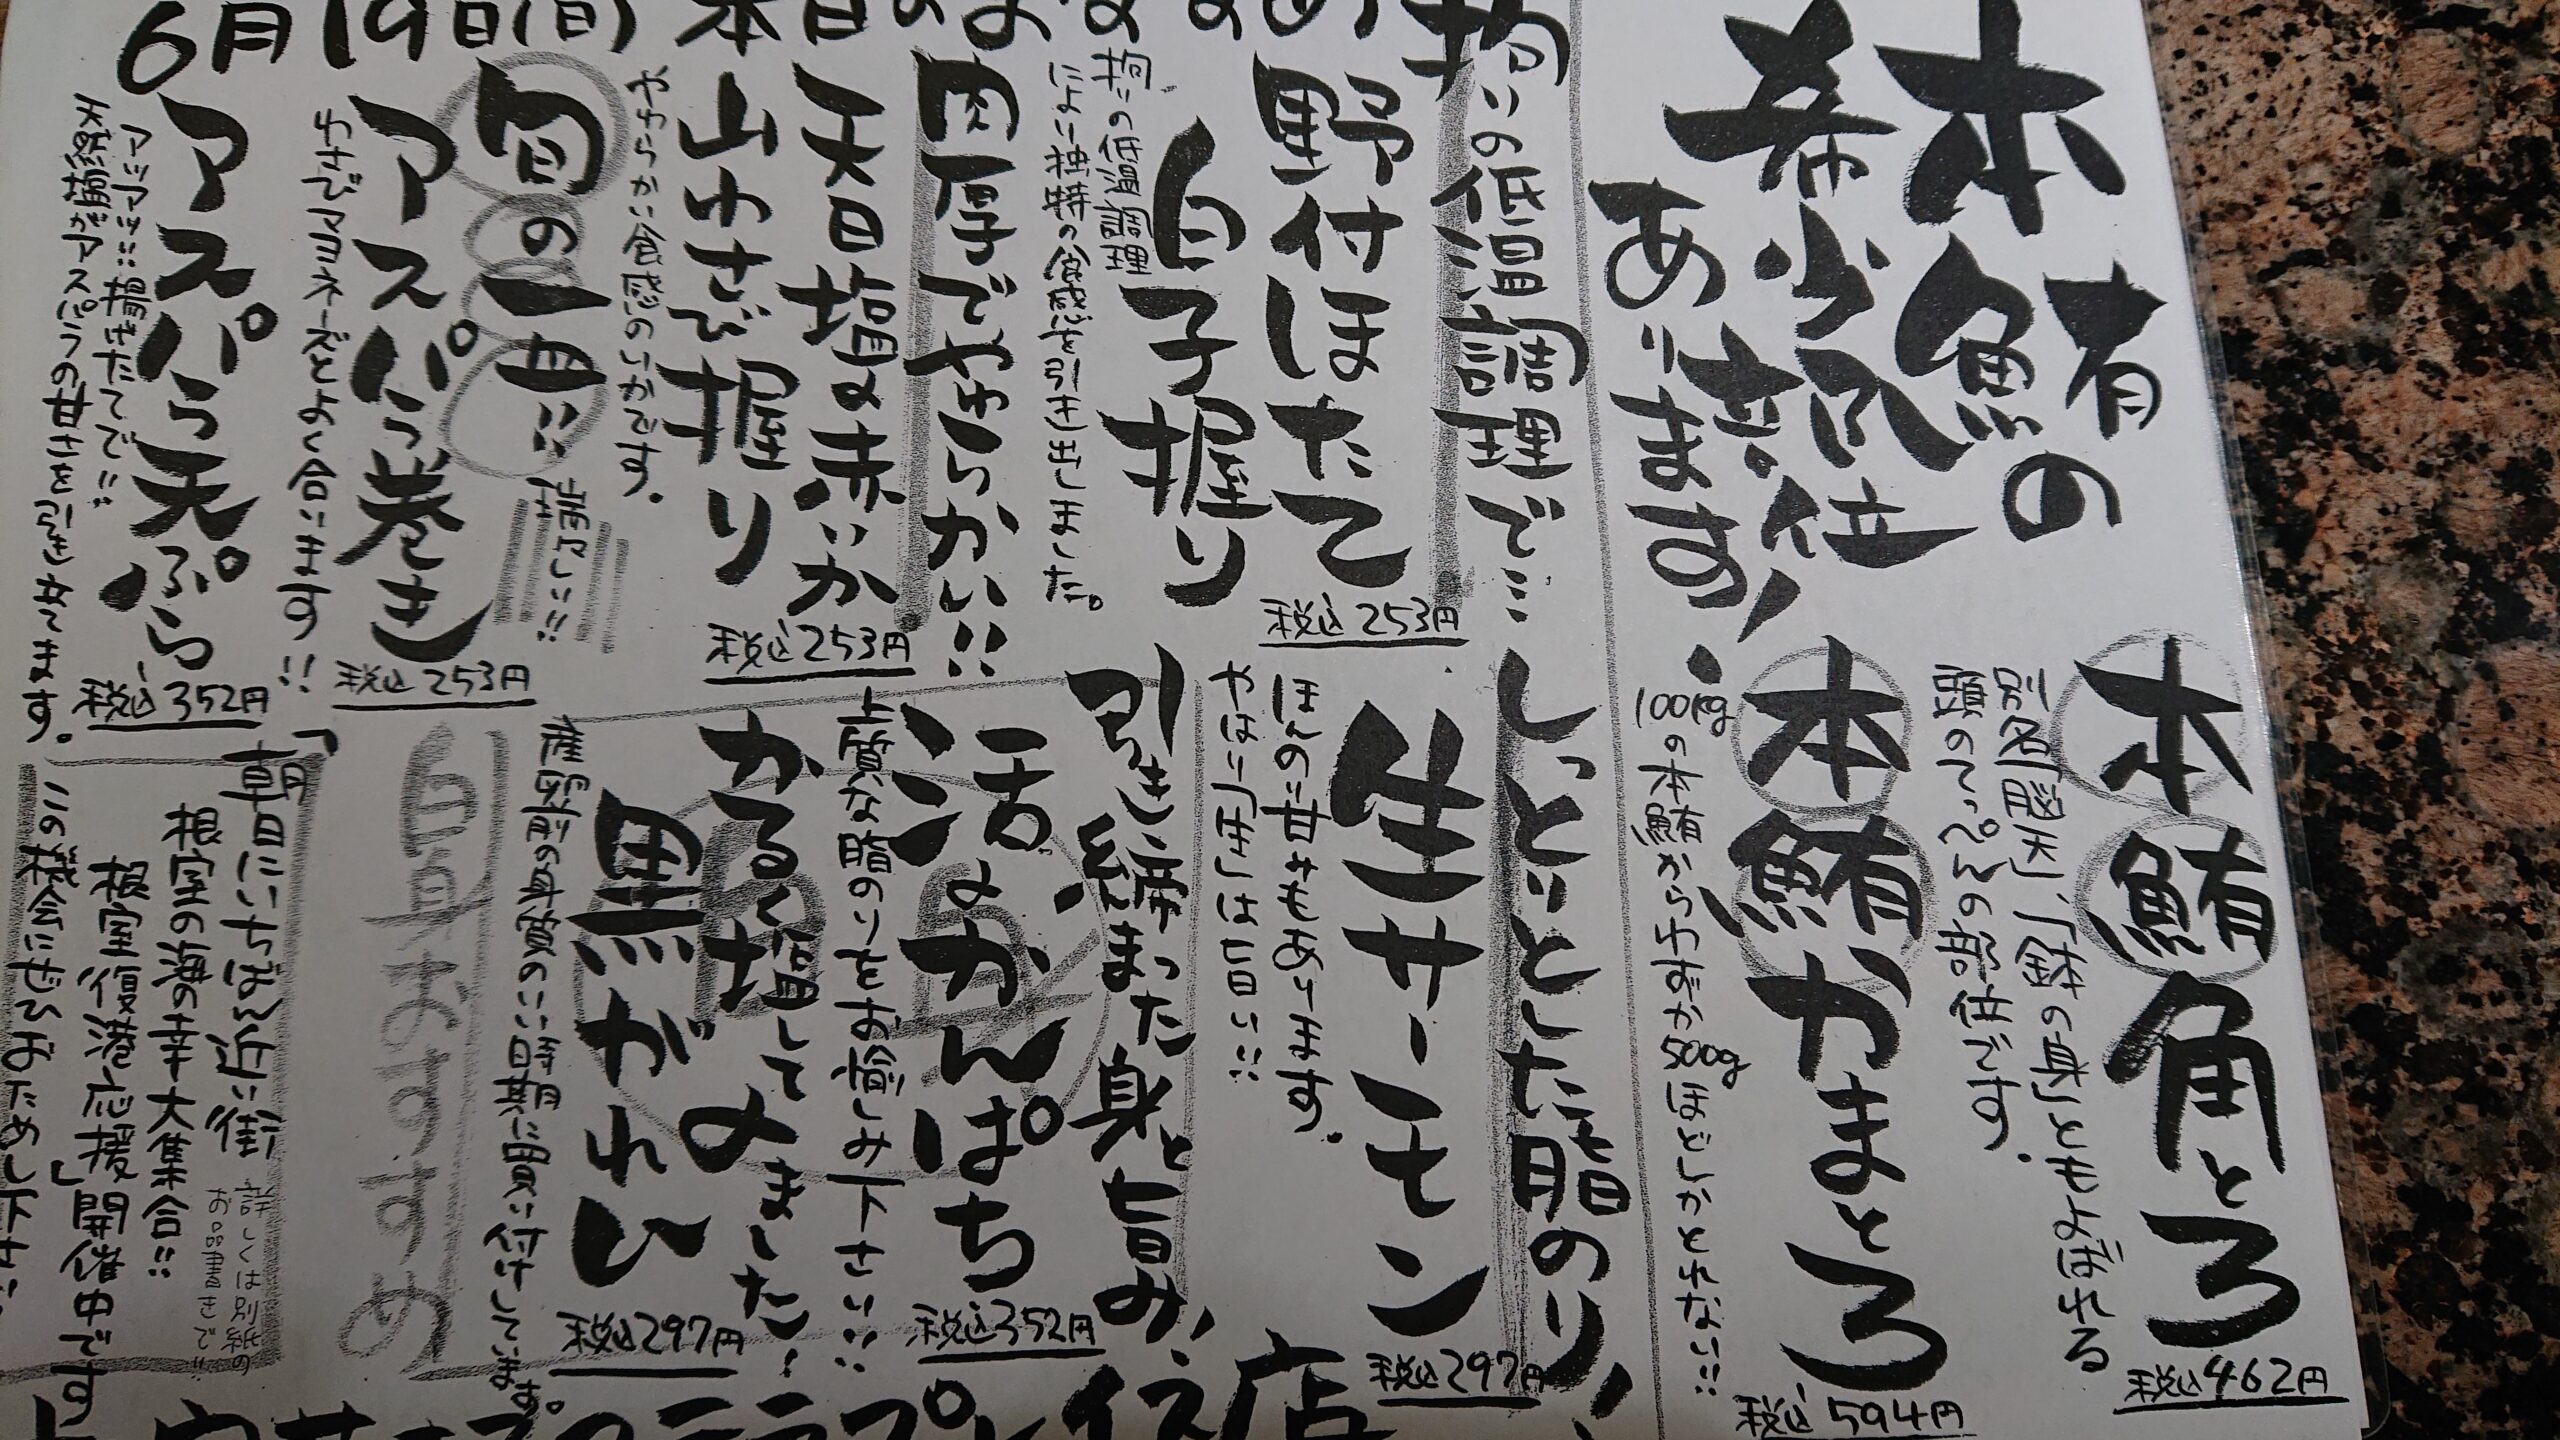 6月19日(日)
本鮪の
希少部位
あります!
本鮪角とろ
別名「脳天」、「鉢の身」ともよばれる
頭のてっぺんの部位です。
税込462円
本鮪かまとろ
100kgの本鮪からわずか500gほどしかとれない!!
税込594円
拘りの低温調理で…
野付ほたて
白子握り
税込253円
拘りの低温調理
により独特の食感を引き出しました。
しっとりとした脂のり!
生サーモン
税込297円
ほんのり甘みもあります。
やはり生は旨い!!
肉厚でやわらかい!!
天日塩〆赤いか
山わさび握り
税込253円
やわらかい食感のいかです。
引き締まった身と旨み!
活〆かんぱち
税込352円
上質な脂のりをお愉しみ下さい!!
かるく塩して〆ました!
黒がれい
税込297円
産卵前の身質のいい時期に買い付けしています。
旬の一皿!!
アスパラ巻き
税込253円
わさびマヨネーズとよく合います!!
アスパラ天ぷら
税込352円
アッアッ!!揚げたてで!!
天然藻塩がアスパラの甘さを引き立てます。
店長おすすめ
「朝日にいちばん近い街
根室の海の幸大集合!!
根室復港応援」開催中です
この機会にぜひおためし下さい
詳しくは別紙の
お品書きで!!